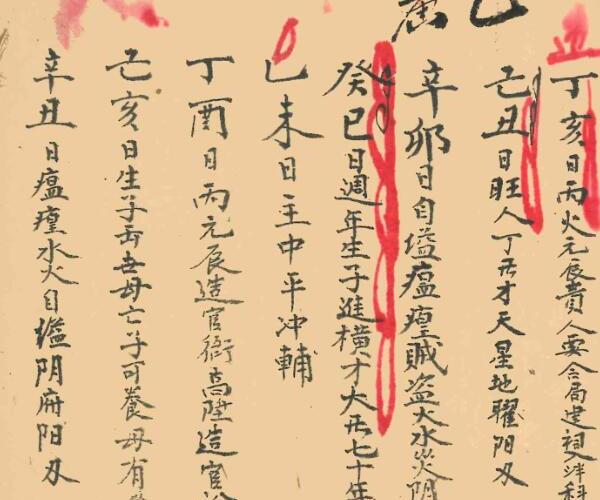 丁亥日丙火元辰貴人要合局建祠泮科
己丑日旺人丁旺才天星地曜阳刃
辛卯日自缢瘟瘴賊盗大水災阴
癸巳日週年生子進横才大旺七十年
乙未日主中平冲輔
丁酉日丙元辰造官衙高陞造官
己亥日生子岳母亡子可養母有
辛丑日瘟瘴水火自缢阴府阳刃